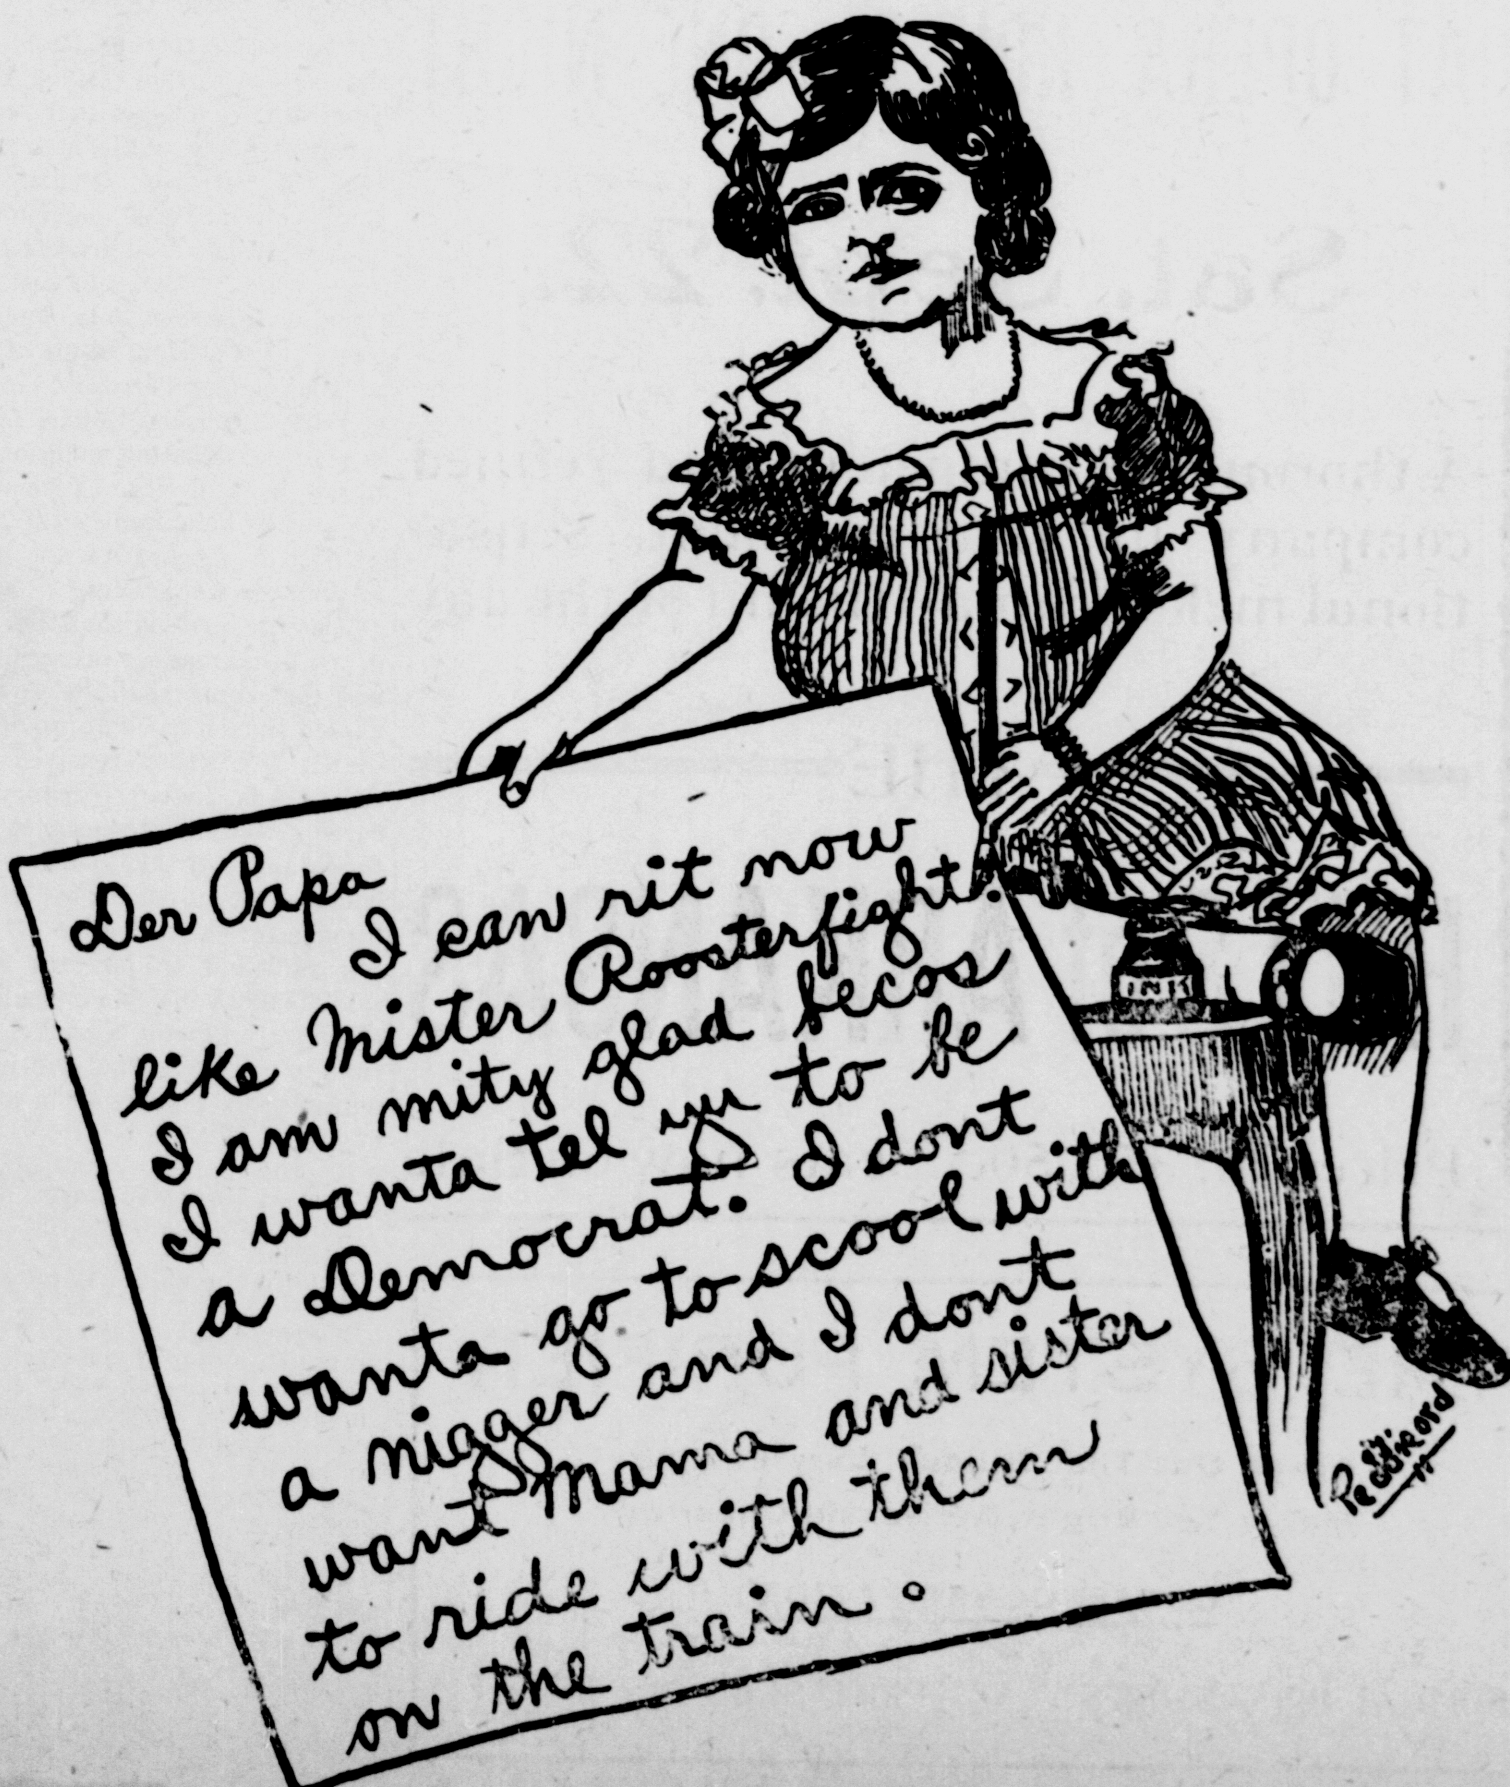 Der Papa
I can rit now
like Mister Roosterfight.
I am mity glad becos
I wanta tel yu to be
a Democrat. I dont
wanta go to scool with
a nigger and I dont
want Mama and sister
to ride with them
on the train.
INK